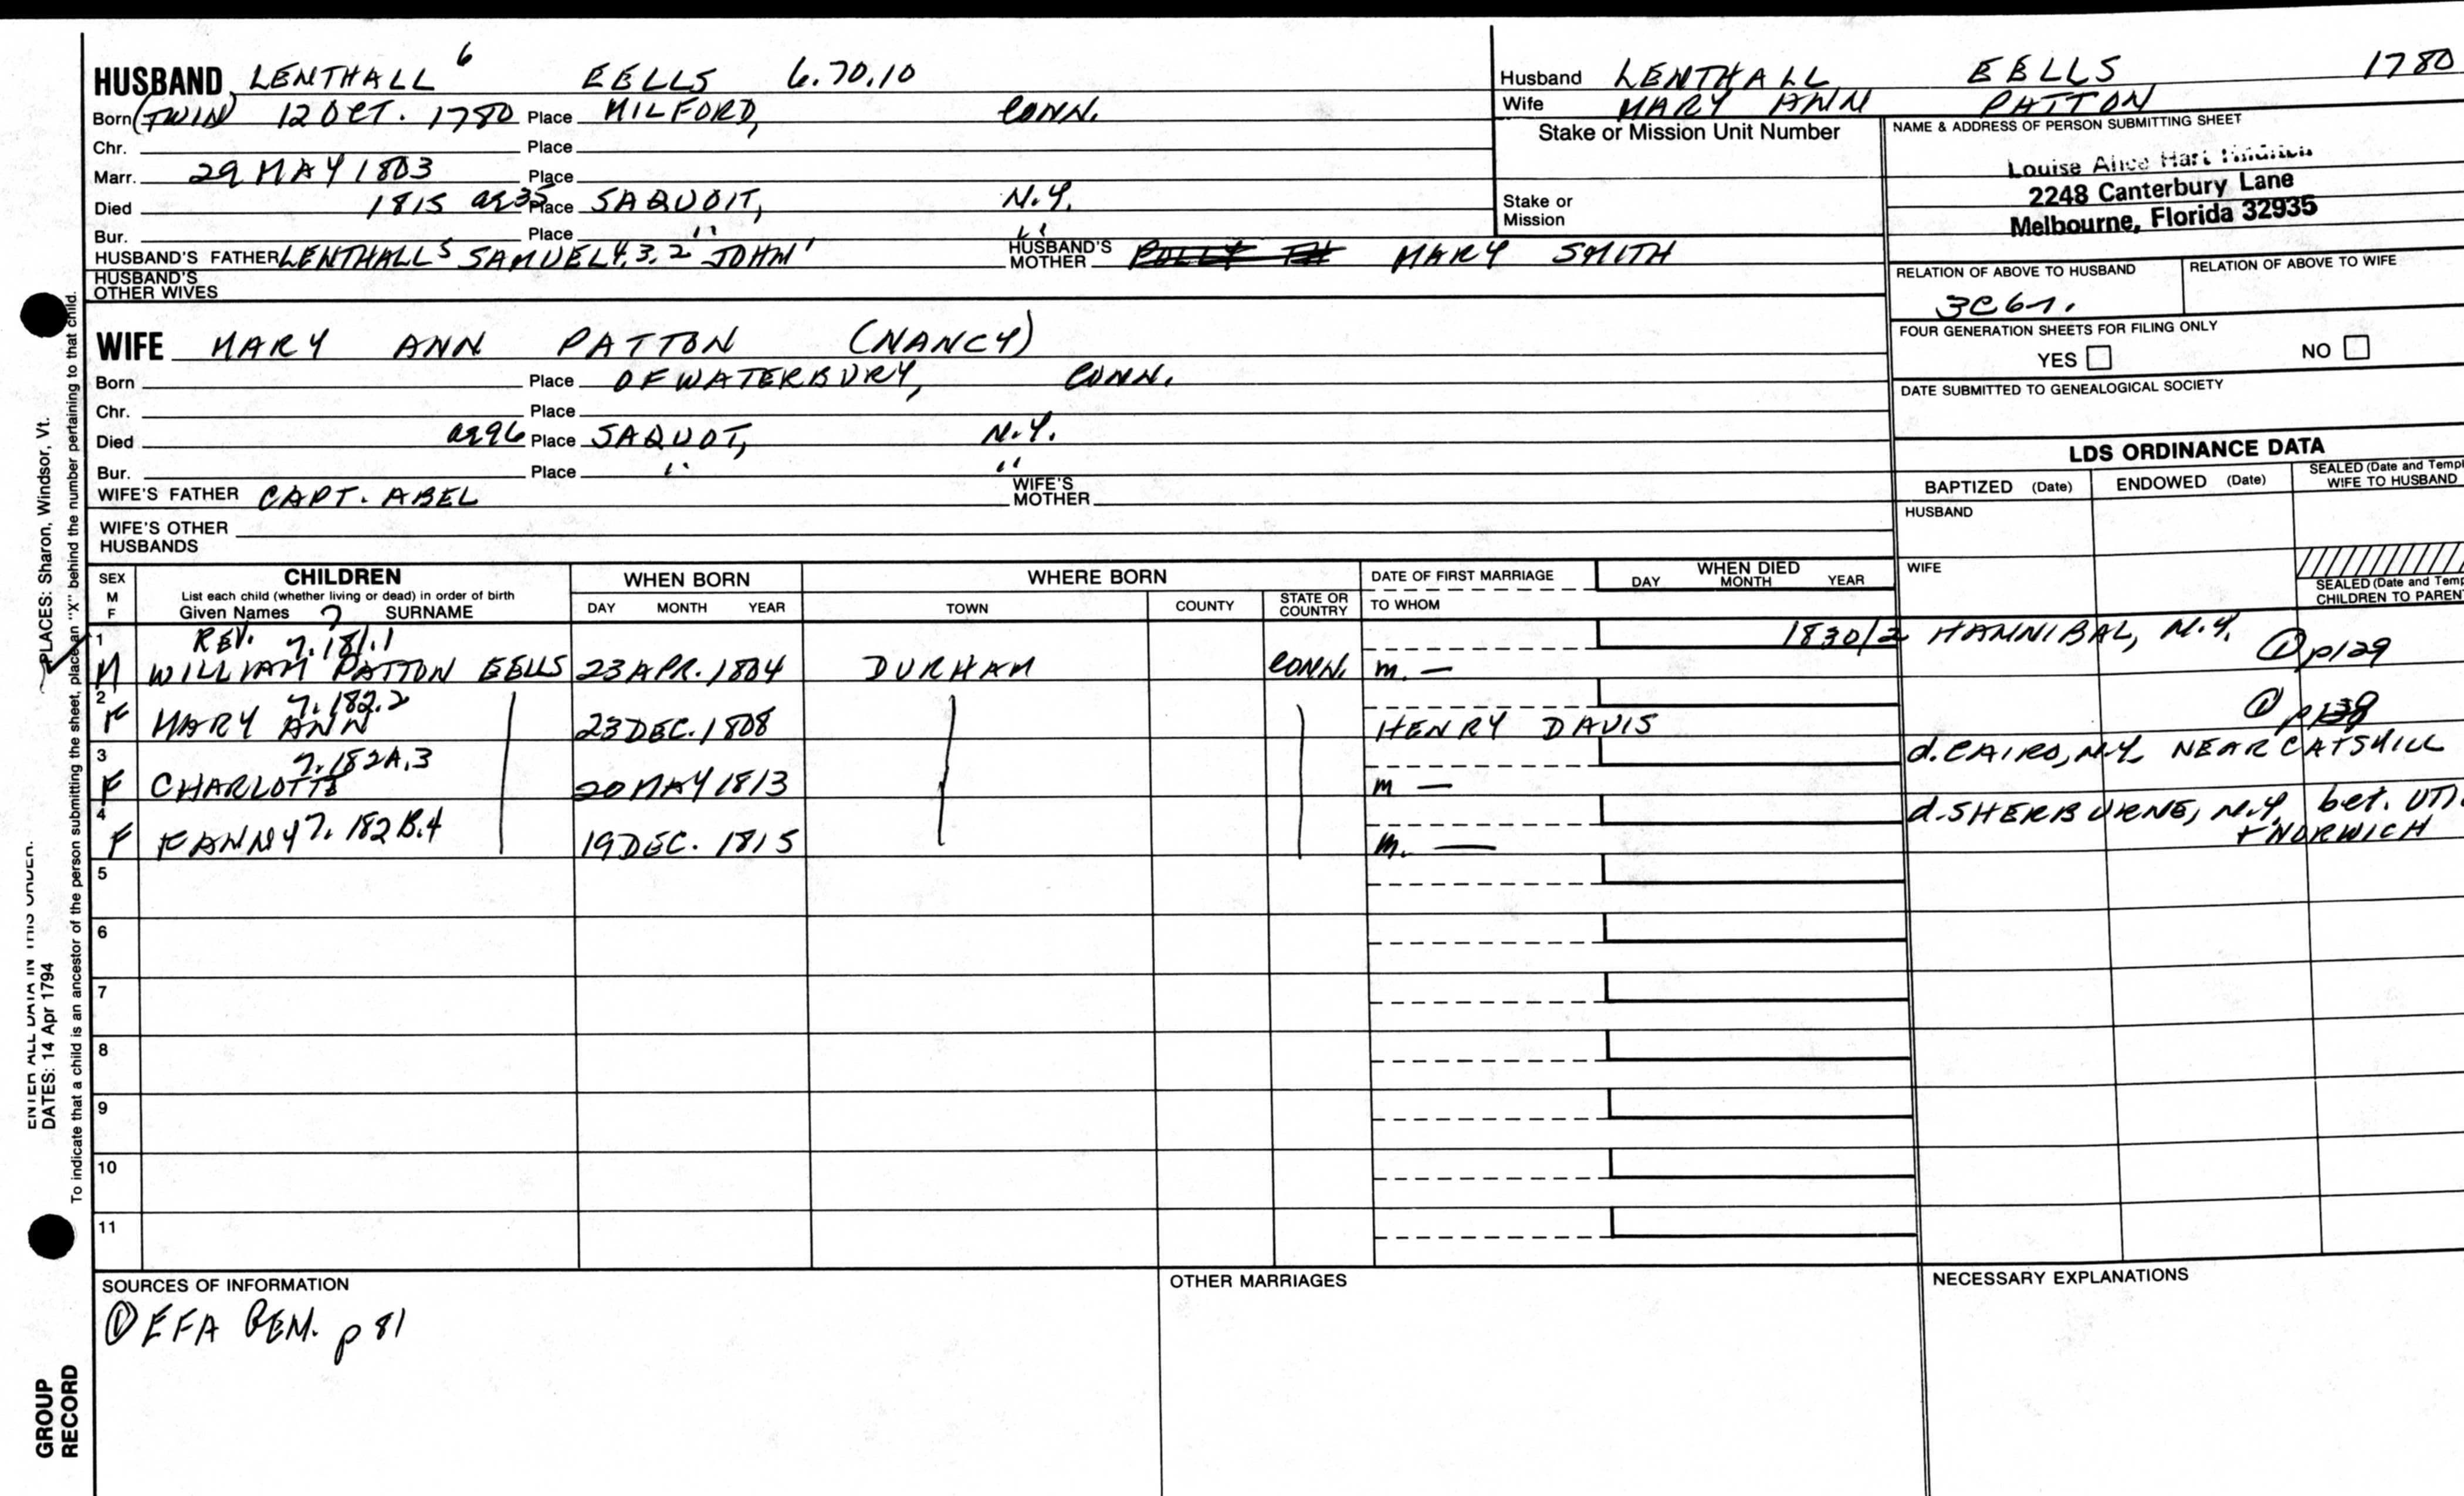 HUSBAND LENTHALL 6 EELLS 6.70.10
Born (TWIN) 12 OCT. 1780 Place MILFORD, CONN.
Chr. Place
Marr. 29 MAY 1803 Place
Died 1815 ae 35 Place SAQUOIT, N.Y.
Bur. Place " "
HUSBAND'S FATHER LENTHALL 5 SAMUEL 4.3.2 JOHN 1 HUSBAND'S MOTHER MARY SMITH
HUSBAND'S OTHER WIVES
Husband LENTHALL EELLS 1780
Wife MARY ANN PATTON
Stake or Mission Unit Number
Stake or Mission
NAME & ADDRESS OF PERSON SUBMITTING SHEET
Louise Alice Hart
2248 Canterbury Lane
Melbourne, Florida 32935
RELATION OF ABOVE TO HUSBAND RELATION OF ABOVE TO WIFE
FOUR GENERATION SHEETS FOR FILING ONLY
YES NO
DATE SUBMITTED TO GENEALOGICAL SOCIETY
WIFE MARY ANN PATTON (NANCY)
Born Place OF WATERBURY, CONN.
Chr. Place
Died ae 96 Place SAQUOT, N.Y.
Bur. Place " "
WIFE'S FATHER CAPT. ABEL WIFE'S MOTHER
WIFE'S OTHER HUSBANDS
LDS ORDINANCE DATA
BAPTIZED (Date) ENDOWED (Date) SEALED (Date and Templ WIFE TO HUSBAND
HUSBAND
WIFE
SEALED (Date and Temp CHILDREN TO PAREN
SEX M F
CHILDREN
List each child (whether living or dead) in order of birth
Given Names 7 SURNAME
WHEN BORN
DAY MONTH YEAR
WHERE BORN
TOWN COUNTY STATE OR COUNTRY
DATE OF FIRST MARRIAGE
TO WHOM
WHEN DIED
DAY MONTH YEAR
1 REV. 7.181.1 1830/2 HANNIBAL, N.Y. ① p129
M WILLIAM PATTON EELLS 23 APR. 1804 DURHAM CONN. m. —
2 7.182.2
F MARY ANN 23 DEC. 1808 HENRY DAVIS ①
3 7.182A.3 d. CAIRO, N.Y. NEAR CATSKILL
F CHARLOTTE 20 MAY 1813 m —
4 d. SHERBURNE, N.Y. bet. UTI
F FANNY 7.182B.4 19 DEC. 1815 m. — + NORWICH
5
6
7
8
9
10
11
SOURCES OF INFORMATION
① EFA GEN. p 81
OTHER MARRIAGES
NECESSARY EXPLANATIONS
PLACES: Sharon, Windsor, Vt.
ENTER ALL DATA IN THIS ORDER:
DATES: 14 Apr 1794
To indicate that a child is an ancestor of the person submitting the sheet, place an "X" behind the number pertaining to that child.
GROUP
RECORD